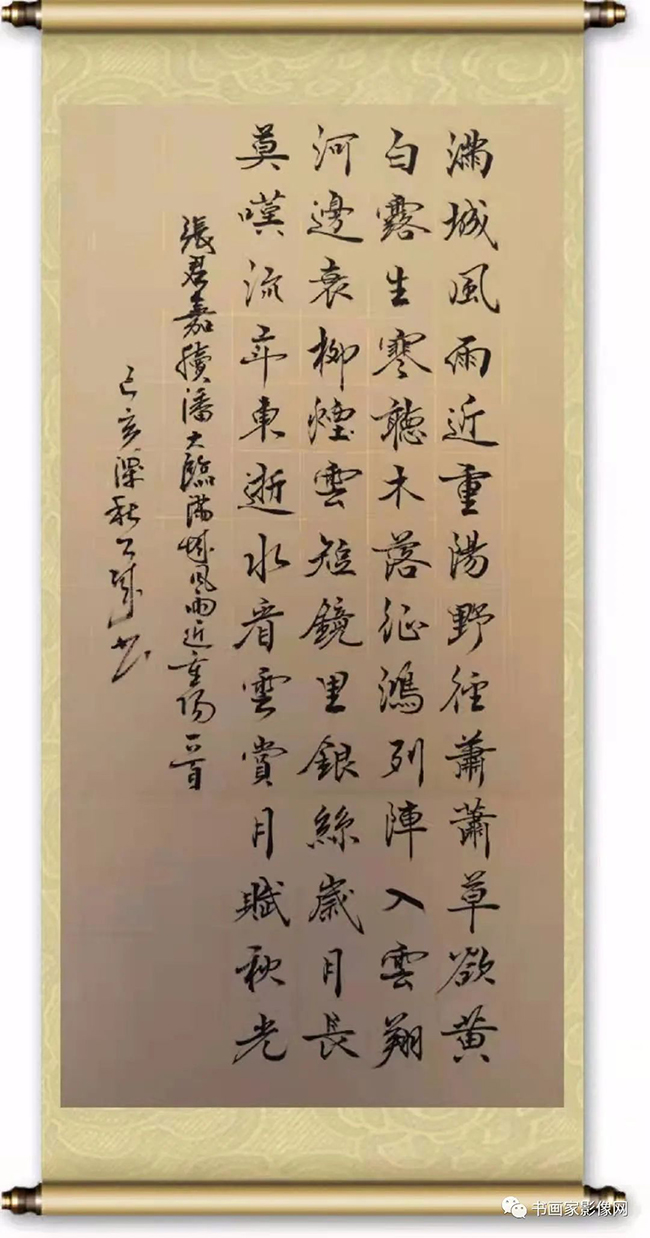 滿城風雨近重陽野徑蕭蕭草欲黃
白露生寒聽木落征鴻列陣入雲翔
河邊衰柳煙雲短鏡里銀絲歲月長
莫嘆流年東逝水看雲賞月賦秋光
張君嘉續潘大臨滿城风雨近重陽一首
己亥深秋书
书画家影像网